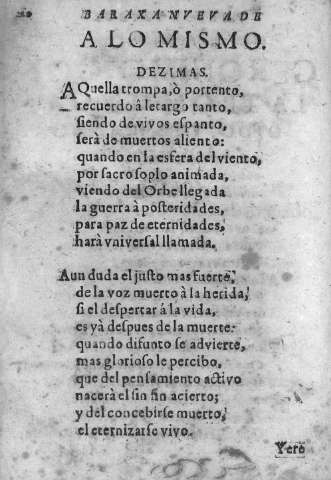 BARAXA NVEVA DE
A LO MISMO.
DEZIMAS.
AQuella trompa, ò portento,
recuerdo â letargo tanto,
siendo de vivos espanto,
serà de muertos aliento:
quando en la esfera del viento,
por sacro soplo animada,
viendo del Orbe llegada
la guerra à posteridades,
para paz de eternidades,
harà vniversal llamada.
Aun duda el justo mas fuerte,
de la voz muerto à la herida,
si el despertar á la vida,
es yà despues de la muerte:
quando difunto se advierte,
mas glorioso le percibo,
que del pensamiento activo
nacerà el sin fin acierto;
y del concebirse muerto,
el eternizarse vivo.
Yerè